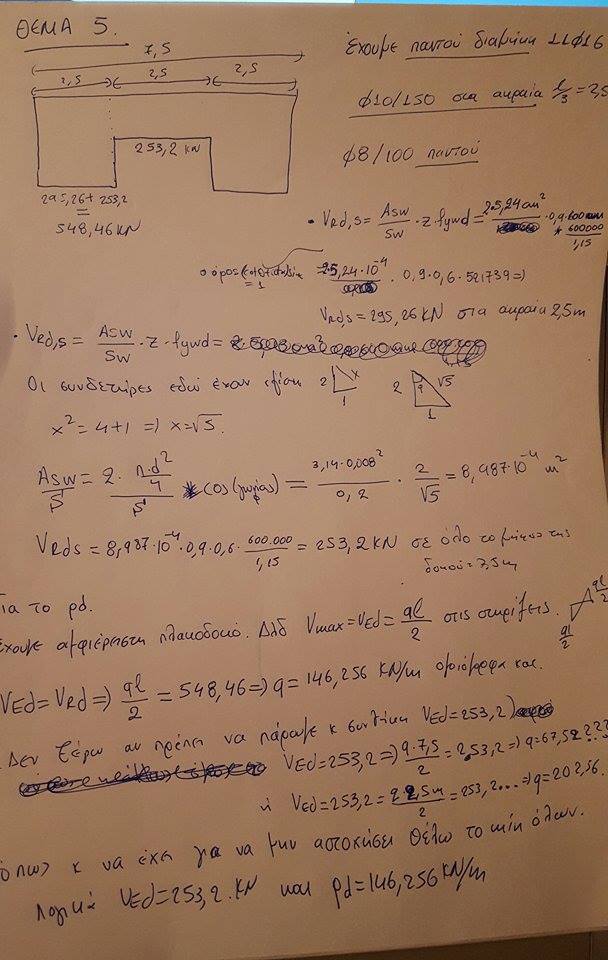 ΘΕΜΑ 5.
7,5
2,5 2,5 2,5
253,2 KN
295,26 + 253,2
=
548,46 KN
Έχουμε παντού διαμήκη 11Φ16
Φ10/150 στα ακραία l/3 = 2,5
Φ8/100 παντού
• VRd,s = Asw/Sw · z · fywd = 25,24 cm² · 0,9 · 600 mm * 600000/1,15
ο όρος = 1 = 25,24·10⁻⁴ · 0,9 · 0,6 · 521739 =>
VRd,s = 295,26 KN στα ακραία 2,5m
• VRd,s = Asw/Sw · z · fywd =
Οι συνδετήρες εδώ έχουν κλίση 2 x 1 2 φ √5 1
x² = 4+1 => x = √5.
Asw/S = 2 · π·d²/4 / S * cos(γωνίας) = 3,14·0,008²/0,2 · 2/√5 = 8,987·10⁻⁴ m²
VRds = 8,987·10⁻⁴ · 0,9 · 0,6 · 600.000/1,15 = 253,2 KN σε όλο το μήκος της
δοκού = 7,5m
Για το pd.
Έχουμε αμφιέρειστη πλακοδοκό. Δλδ Vmax = VEd = ql/2 στις στηρίξεις. ql/2 ql/2
VEd = VRd => ql/2 = 548,46 => q = 146,256 KN/m ομοιόμορφα και.
Δεν ξέρω αν πρέπει να πάρουμε κ συνθήκη VEd = 253,2)
VEd = 253,2 => q·7,5/2 = 253,2 => q = 67,52 ???
ή VEd = 253,2 = q 2,5m/2 = 253,2... => q = 202,56.
όπως κ να έχει για να μην αστοχήσει θέλω το min όλων.
λογικά VEd = 253,2 KN και pd = 146,256 KN/m